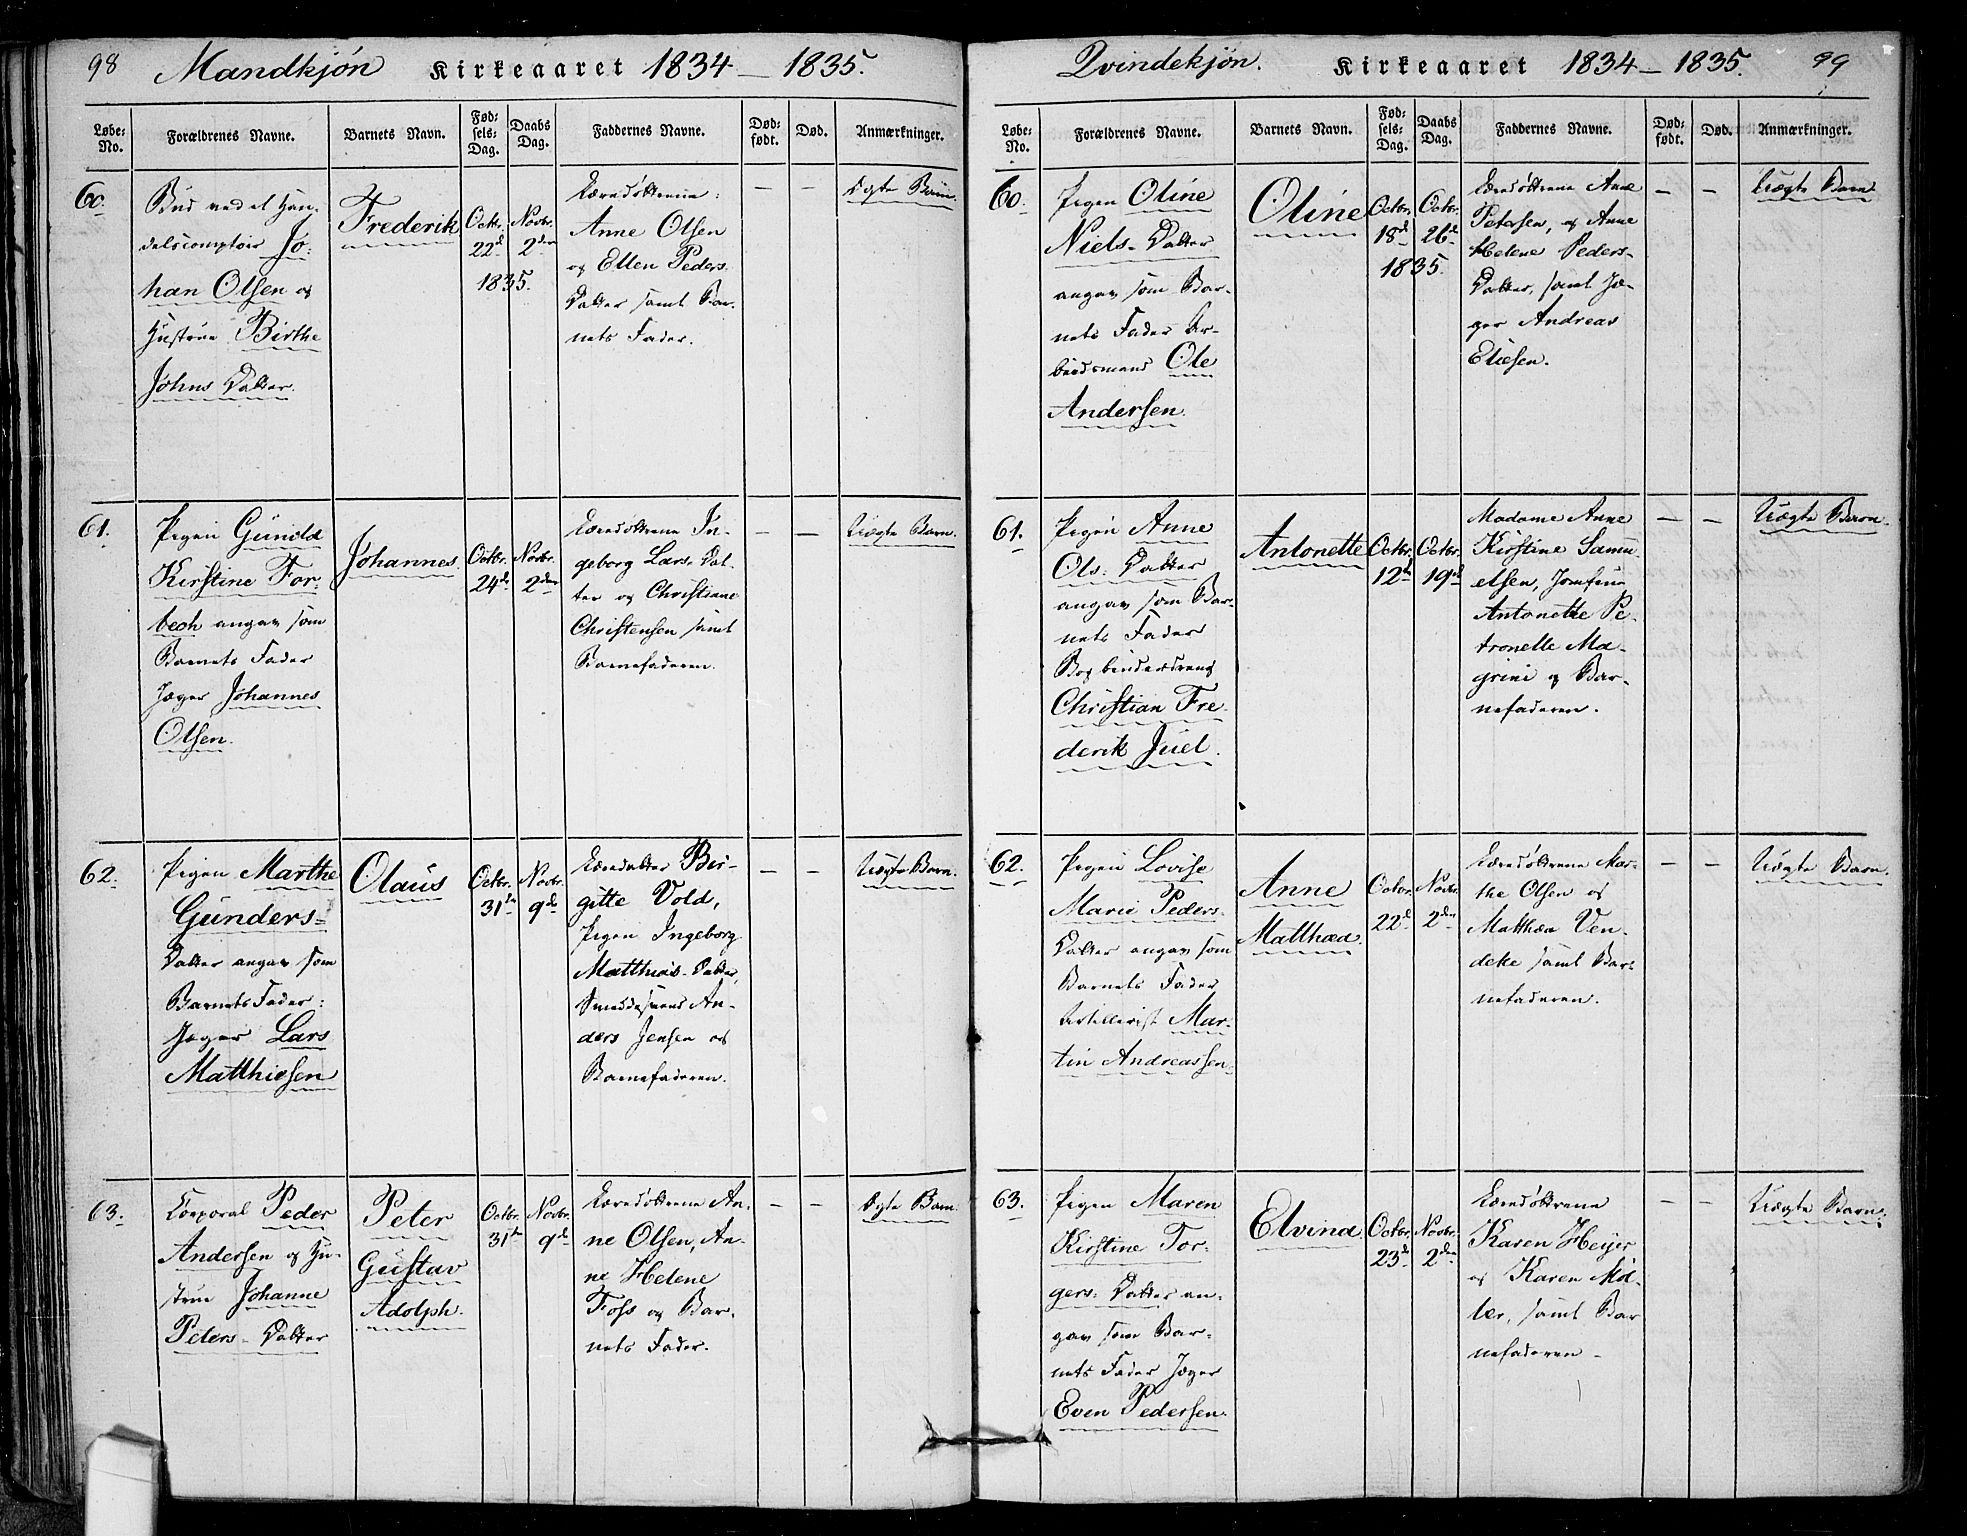 98 Mandkjøn Kirkeaaret 1834 — 1835.
Løbe-No. Forældrenes Navne. Barnets Navn. Fødsels-Dag. Daabs Dag. Faddernes Navne. Dødfødt. Død. Anmærkninger.
60.
Bud ved et Han-
delscomptoir Jo-
han Olsen og
Hustrue Birthe
Johns Datter.
Frederik
Octbr.
22d
1835.
Novbr.
2den
Ane Olsen
og Ellen Peders
Datter samt Bar-
nets Fader.
— —
Ægte Barn.
61.
Pigen Gunild
Kirstine For-
bech angav som
Barnets Fader
Jæger Johannes
Olsen.
Johannes
Octbr.
24de
Novbr.
2den
In-
geborg Lars. Dat-
ter og Christiane
Christensen samt
Barnefaderen.
— —
Uægte Barn.
62.
Pigen Marthe
Gunders-
Datter angav som
Barnets Fader:
Jæger Lars
Matthiesen
Olaus
Octbr.
31te
Novbr.
9de
Bir-
gitte Vold,
Pigen Ingeborg
Matthias-Datter,
Smeddesvend An-
ders Jensen og
Barnefaderen.
— —
Uægte Barn.
63.
Corporal Peder
Andersen og Hu-
strue Johanne
Peters-Datter
Peter
Gustav
Adolph.
Octbr.
31te
Novbr.
9de
An-
ne Olsen, An-
ne Helene
Foss og Bar-
nets Fader.
— —
Ægte Barn.
Qvindekjøn. Kirkeaaret 1834 — 1835. 99
Løbe-No. Forældrenes Navne. Barnets Navn. Fødsels-Dag. Daabs Dag. Faddernes Navne. Dødfødt. Død. Anmærkninger.
60.
Pigen Oline
Niels-Datter
angav som Bar-
nets Fader Ar-
beidsmand Ole
Andersen.
Oline
Octbr.
18de
Octbr.
26de
1835.
Ane
Petersen, og Anne
Helene Peders-
Datter, samt Jæ-
ger Andreas
Eliesen.
— —
Uægte Barn
61.
Pigen Anne
Ols. Datter
angav som Bar-
nets Fader
Bogbinderdreng
Christian Fre-
derik Juel.
Antonette
Octbr.
12te
Octbr.
19de
Madame Anne
Kirstine Samu-
elsen, Jomfrue
Antonette Pe-
tronelle Ma-
grini og Bar-
nefaderen.
— —
Uægte Barn.
62.
Pigen Lovise
Marie Peders-
Datter angav som
Barnets Fader
Artillerist Mar-
tin Andreassen.
Anne
Matthæa.
Octbr.
22de
Novbr.
2den
Mar-
the Olsen og
Matthæa Ven-
deke samt Bar-
nefaderen.
— —
Uægte Barn.
63.
Pigen Maren
Kirstine Tor-
gers. Datter an-
gav som Bar-
nets Fader Jæger
Even Pedersen.
Elvina
Octbr.
23de
Novbr.
2den
Karen Heyer
og Karen Møl-
ler, samt Bar
nefaderen -
— —
Uægte Barn.